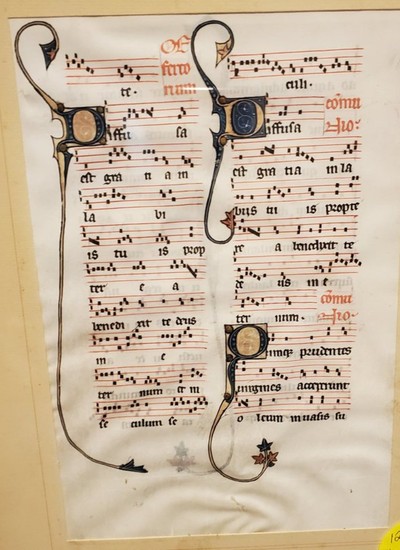 Of
ferto
te. rium
Diffu sa
est gra ti a in
la bi
is tu is prop
ter e a
benedi xit te deus
in e
ter num et in
se culum se
culi. cōmu
Diffusa nio.
est gra tia in la
biis tu is propte
re a benedixit te
de us in e
ter num. cōmu
nio.
Quinque prudentes
uirgines acceperunt
o leum in uasis su
16